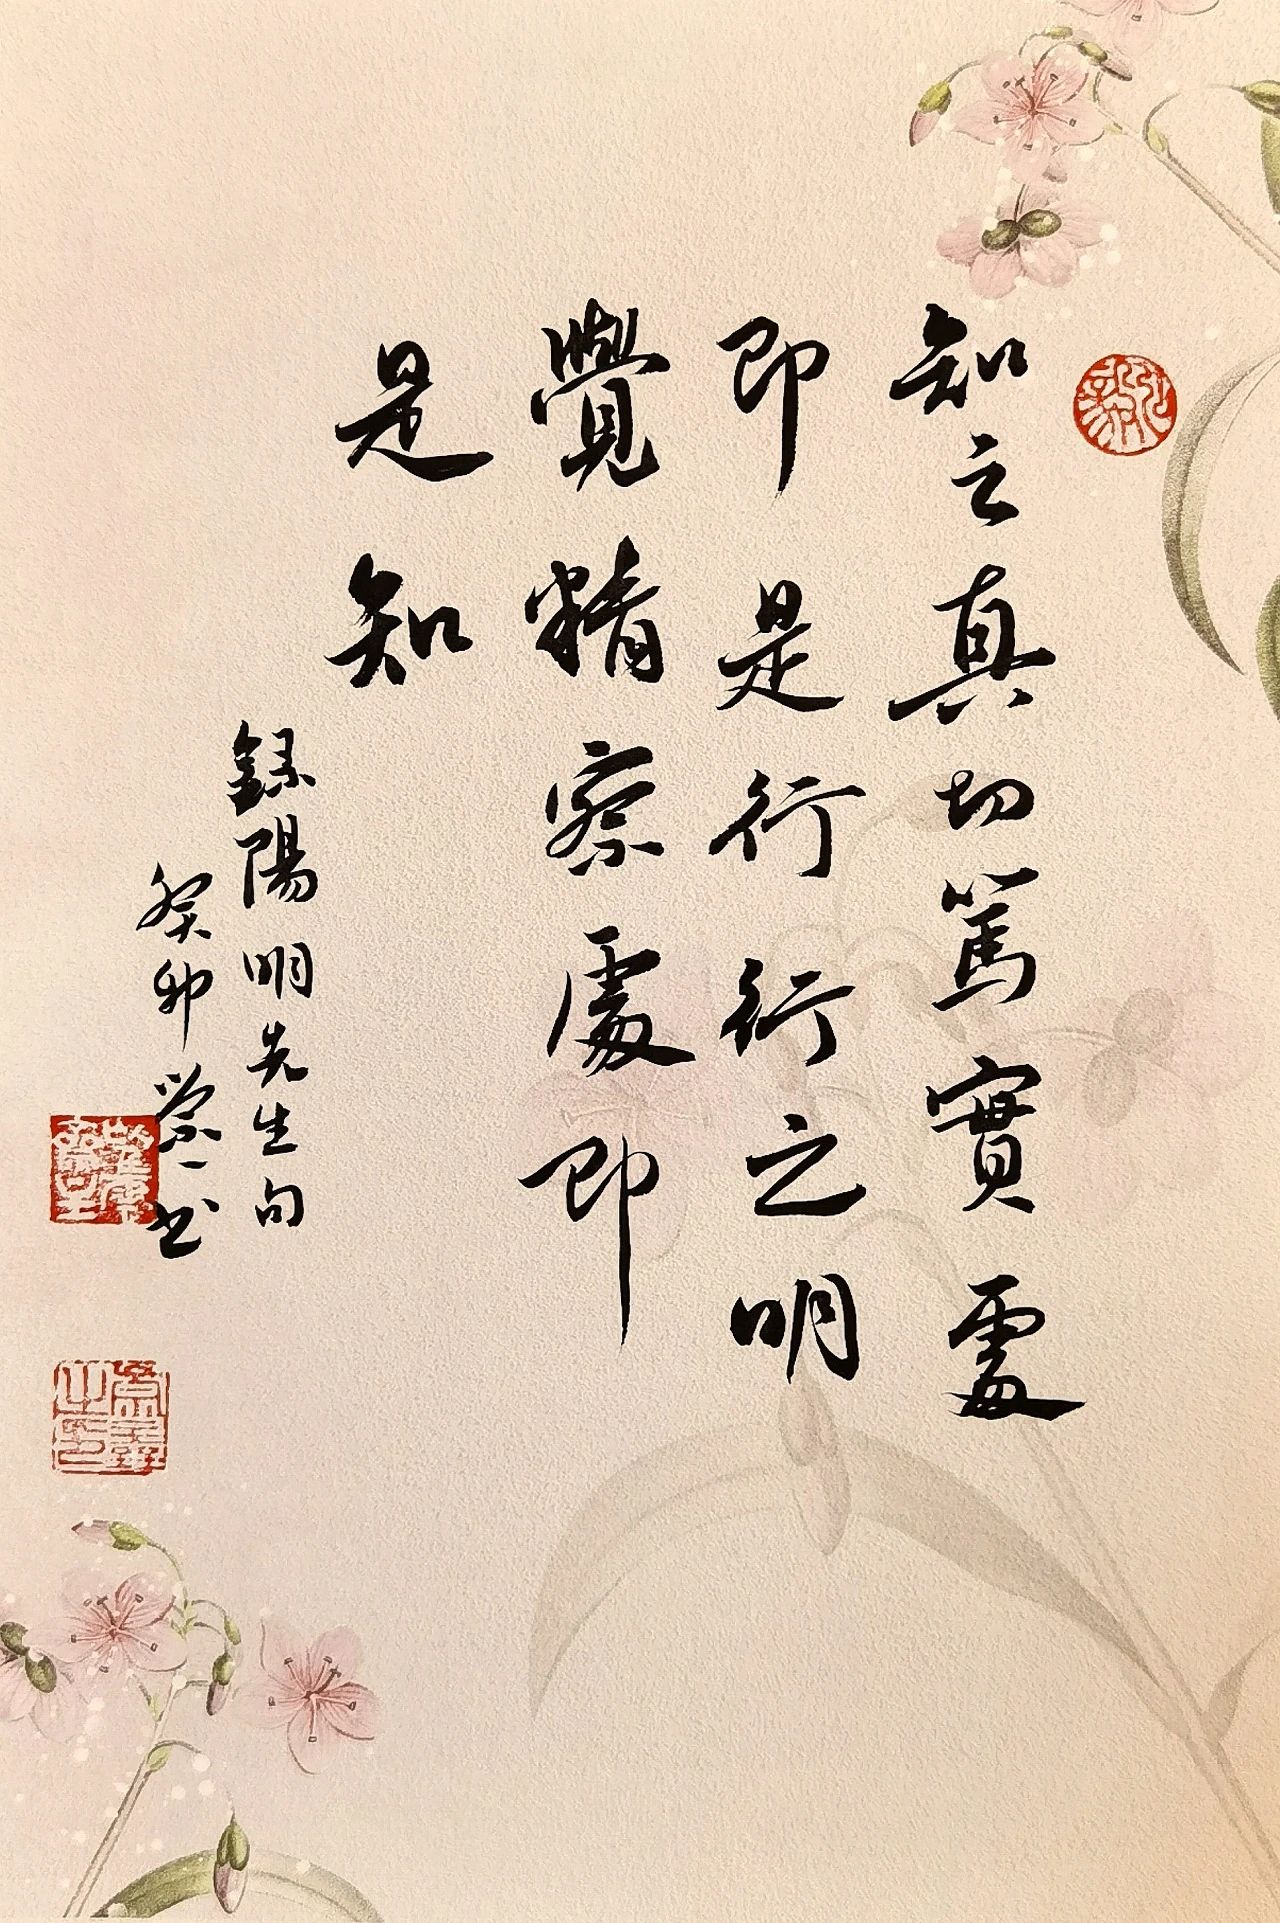 知之真切篤實處
即是行行之明
覺精察處即
是知
錄陽明先生句
癸卯榮一书